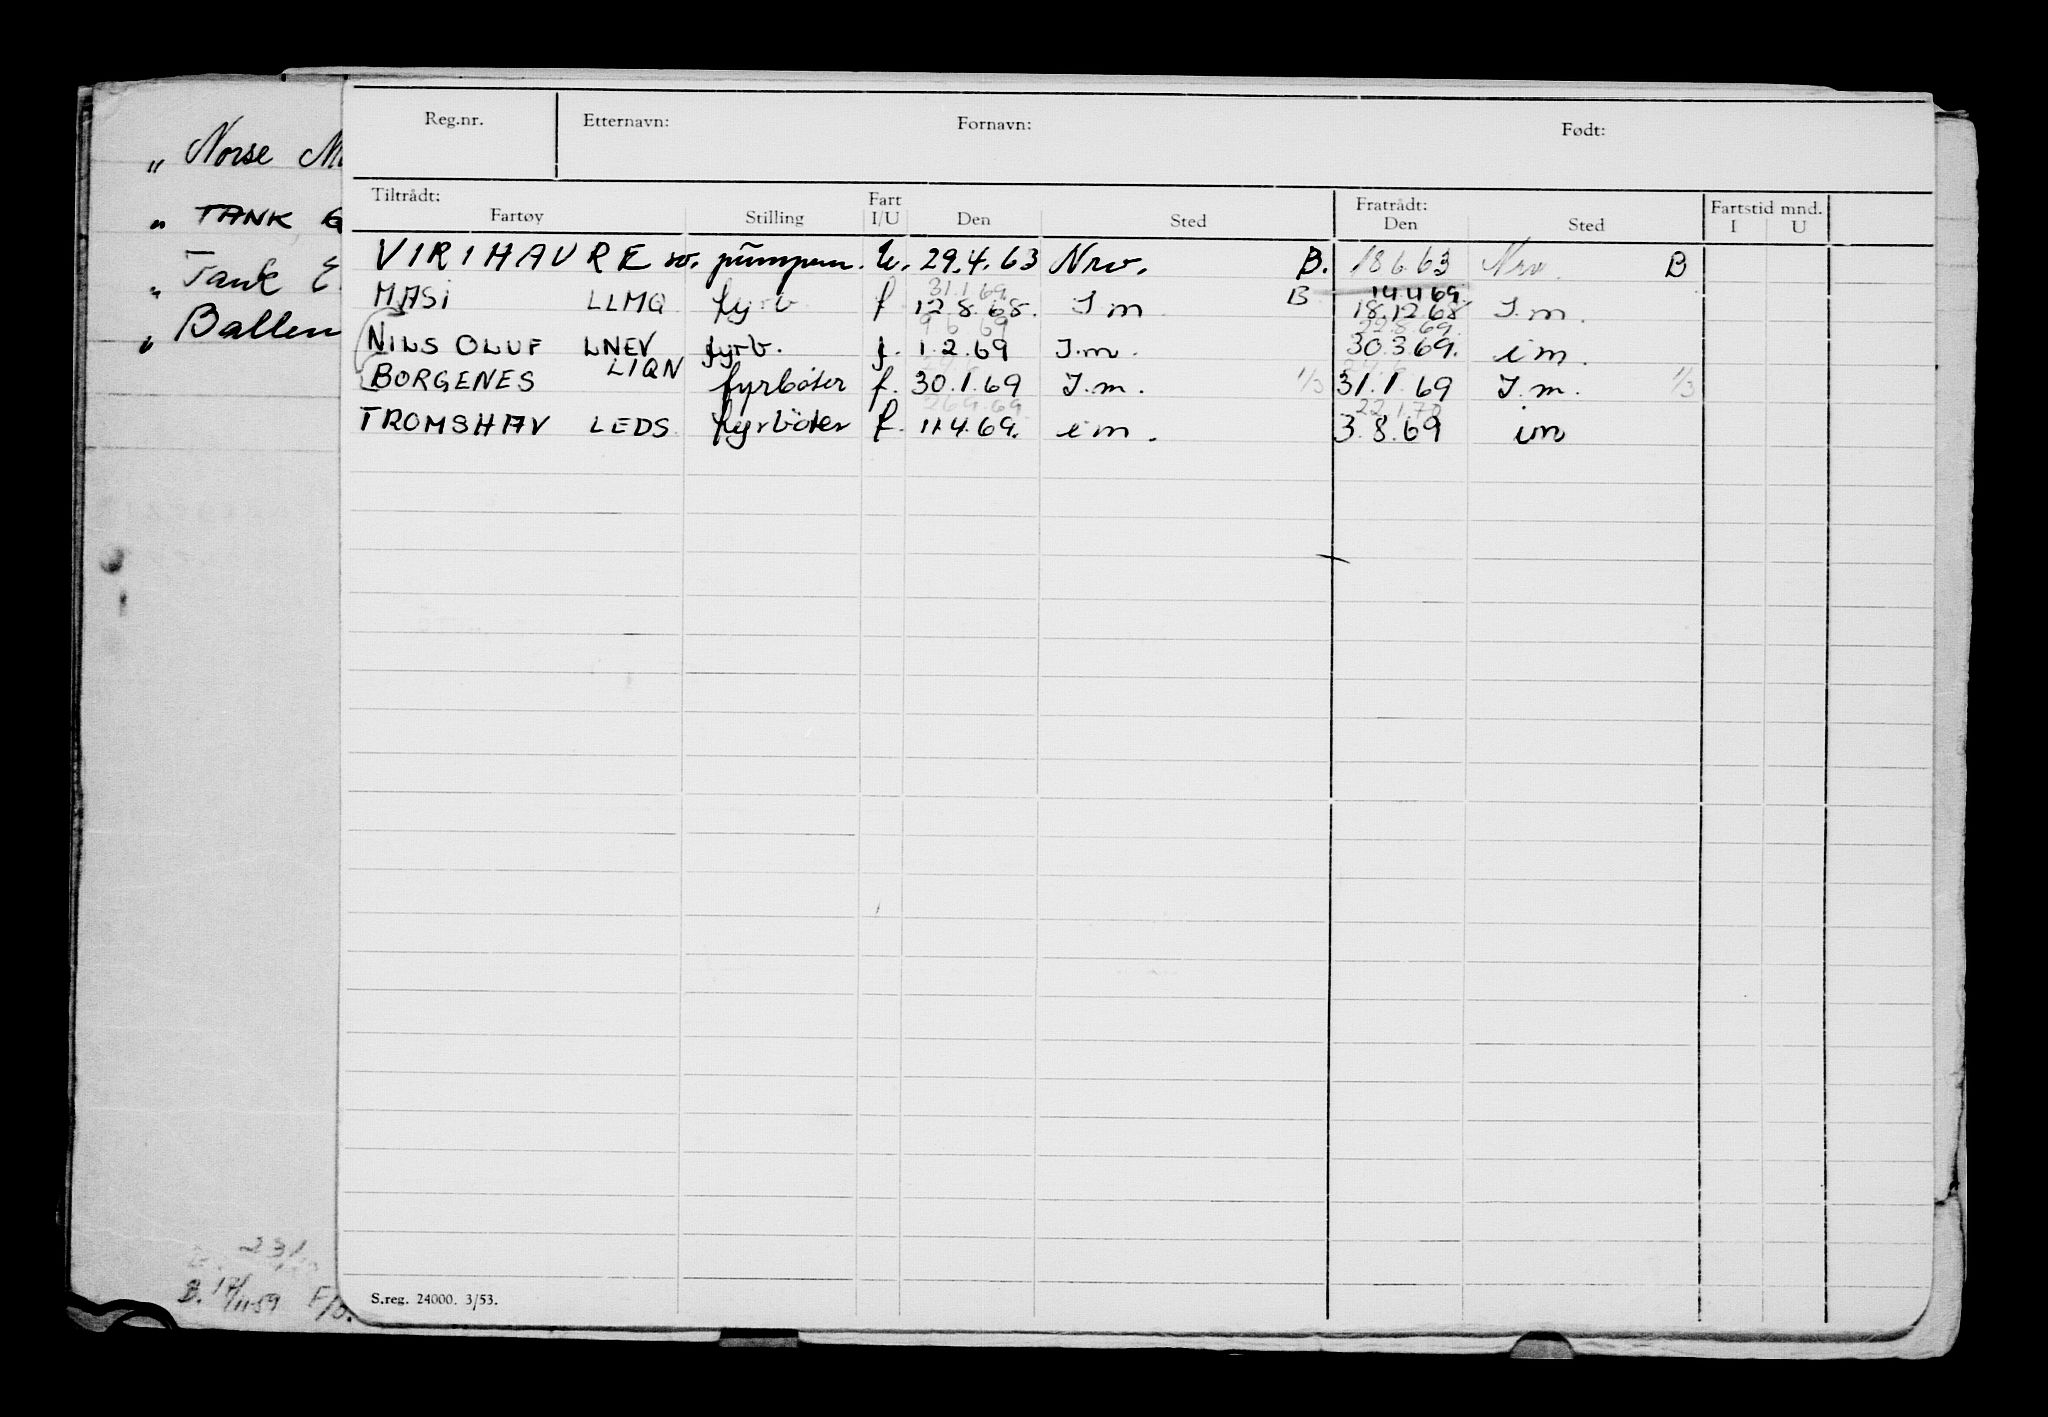 „ Norse
„ TANK
„ Tank
„ Ballen
Reg.nr. Etternavn: Fornavn: Født:
Tiltrådt: Fartøy Stilling Fart I/U Den Sted Fratrådt: Den Sted Fartstid mnd. I U
VIRIHAURE sv. pumpem. U. 29.4.63 Nrv. B. 18.6.63 Nrv. B
31.1.69 14.4.69
MASI LLMQ fyrb f. 12.8.68. I m B 18.12.68 I.m.
9 6 69 22.8.69.
NILS OLUF LNEV fyrb. f. 1.2.69 I.m. 30.3.69. im.
BORGENES LIQN fyrbøter f. 30.1.69 I.m. 1/3 31.1.69 I.m. 1/3
26.9.69. 22.1.70
TROMSHAV LEDS. fyrböter f. 11.4.69. im. 3.8.69 im
23/
B. 17/11-59
S.reg. 24000. 3/53.